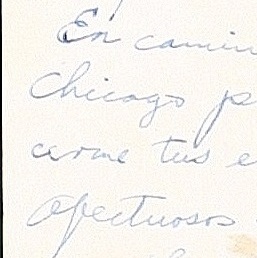 En camin
Chicago p
cerme tus e
afectuosos